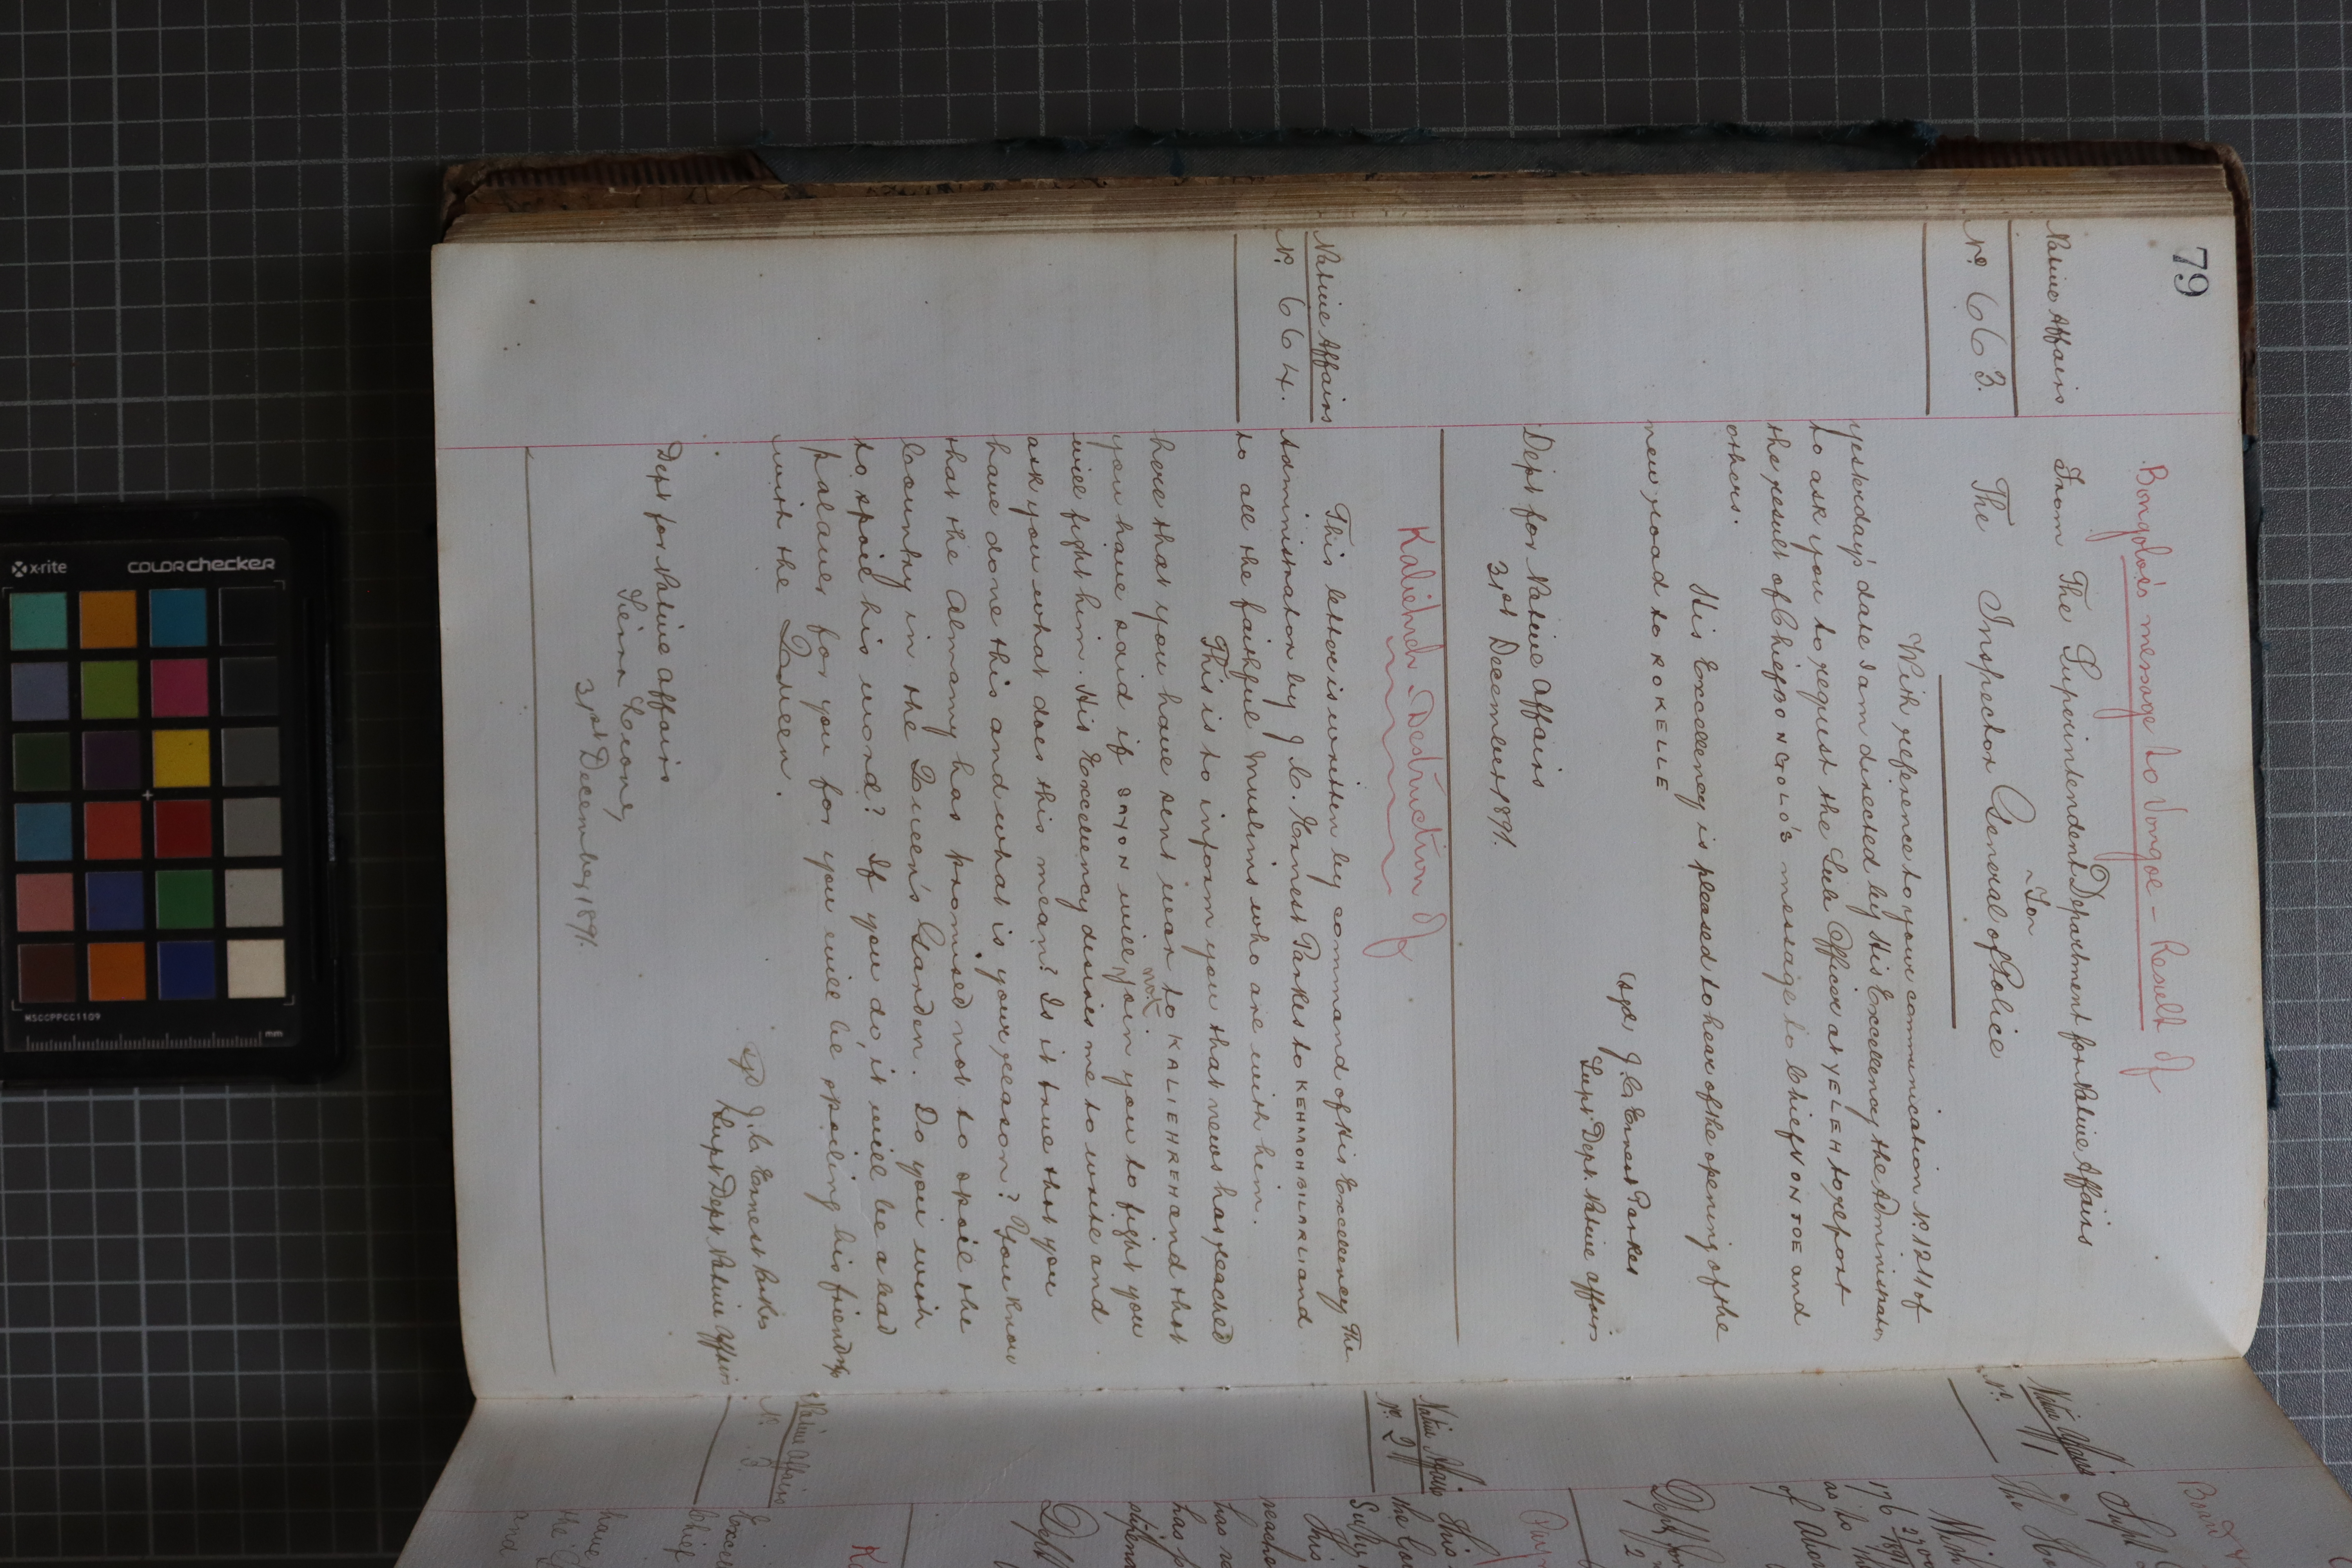 79
Bongolo's message to Vongoe - Result of
Native Affairs
From The Superintendent Department for Native Affairs
To
No. 663.
The Inspector General of Police
With reference to your communication No. 1241 of
yesterday's date I am directed by His Excellency the Administrator
to ask you to request the Sub Officer at YELEH to report
the result of Chief BONGOLO'S message to Chief VONJOE and
others.
His Excellency is pleased to hear of the opening of the
new road to ROKELLE
(sgd) J. C. Ernest Parkes
Supt Dept. Native Affairs
Dept for Native Affairs
31st December 1891.
Kaliehreh - Destruction of
Native Affairs
No. 664.
This letter is written by command of His Excellency The
Administrator by J. C. Ernest Parkes to KEHMOHBILIARLI and
to all the faithful Muslims who are with him.
This is to inform you that news has reached
here that you have sent war to KALIEHREH and that
you have said if SAYON will not join you to fight you
will fight him. His Excellency desires me to write and
ask you what does this mean? Is it true that you
have done this and what is your reason? You know
that the Almamy has promised not to spoil the
Country in the Queen's Garden. Do you wish
to spoil his word? If you do, it will be a bad
palaver for you for you will be spoiling his friendship
with the Queen.
sgd J. C. Ernest Parkes
Supt Dept. Native Affairs
Dept for Native Affairs
Sierra Leone,
31st December 1891.
Native Affairs
No. 1
Supt
The
of
Native Affairs
No. 2
This
This
has
Dept
Native Affairs
No. 3
Chief
have
the
and
x-rite
COLORchecker
MSCCPPCC1109
mm